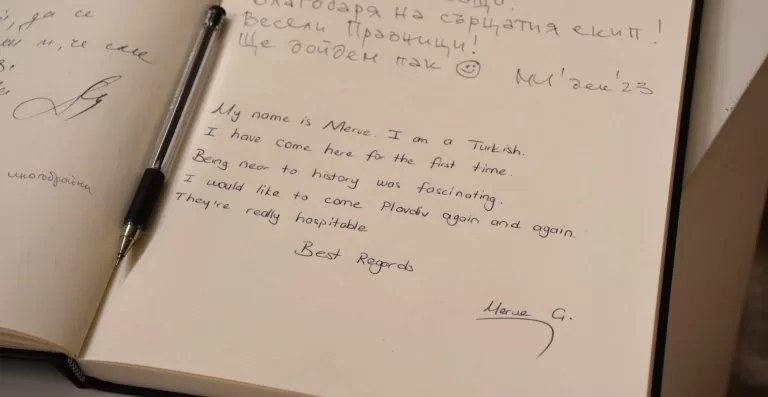 да се
и, че сме
многобройни
Благодаря на сърцатия екип!
Весели Празници!
Ще дойдем пак ☺
МИ' дек '23
My name is Merve. I am a Turkish.
I have come here for the first time.
Being near to history was fascinating.
I would like to come Plovdiv again and again.
They're really hospitable
Best Regards
Merve G.